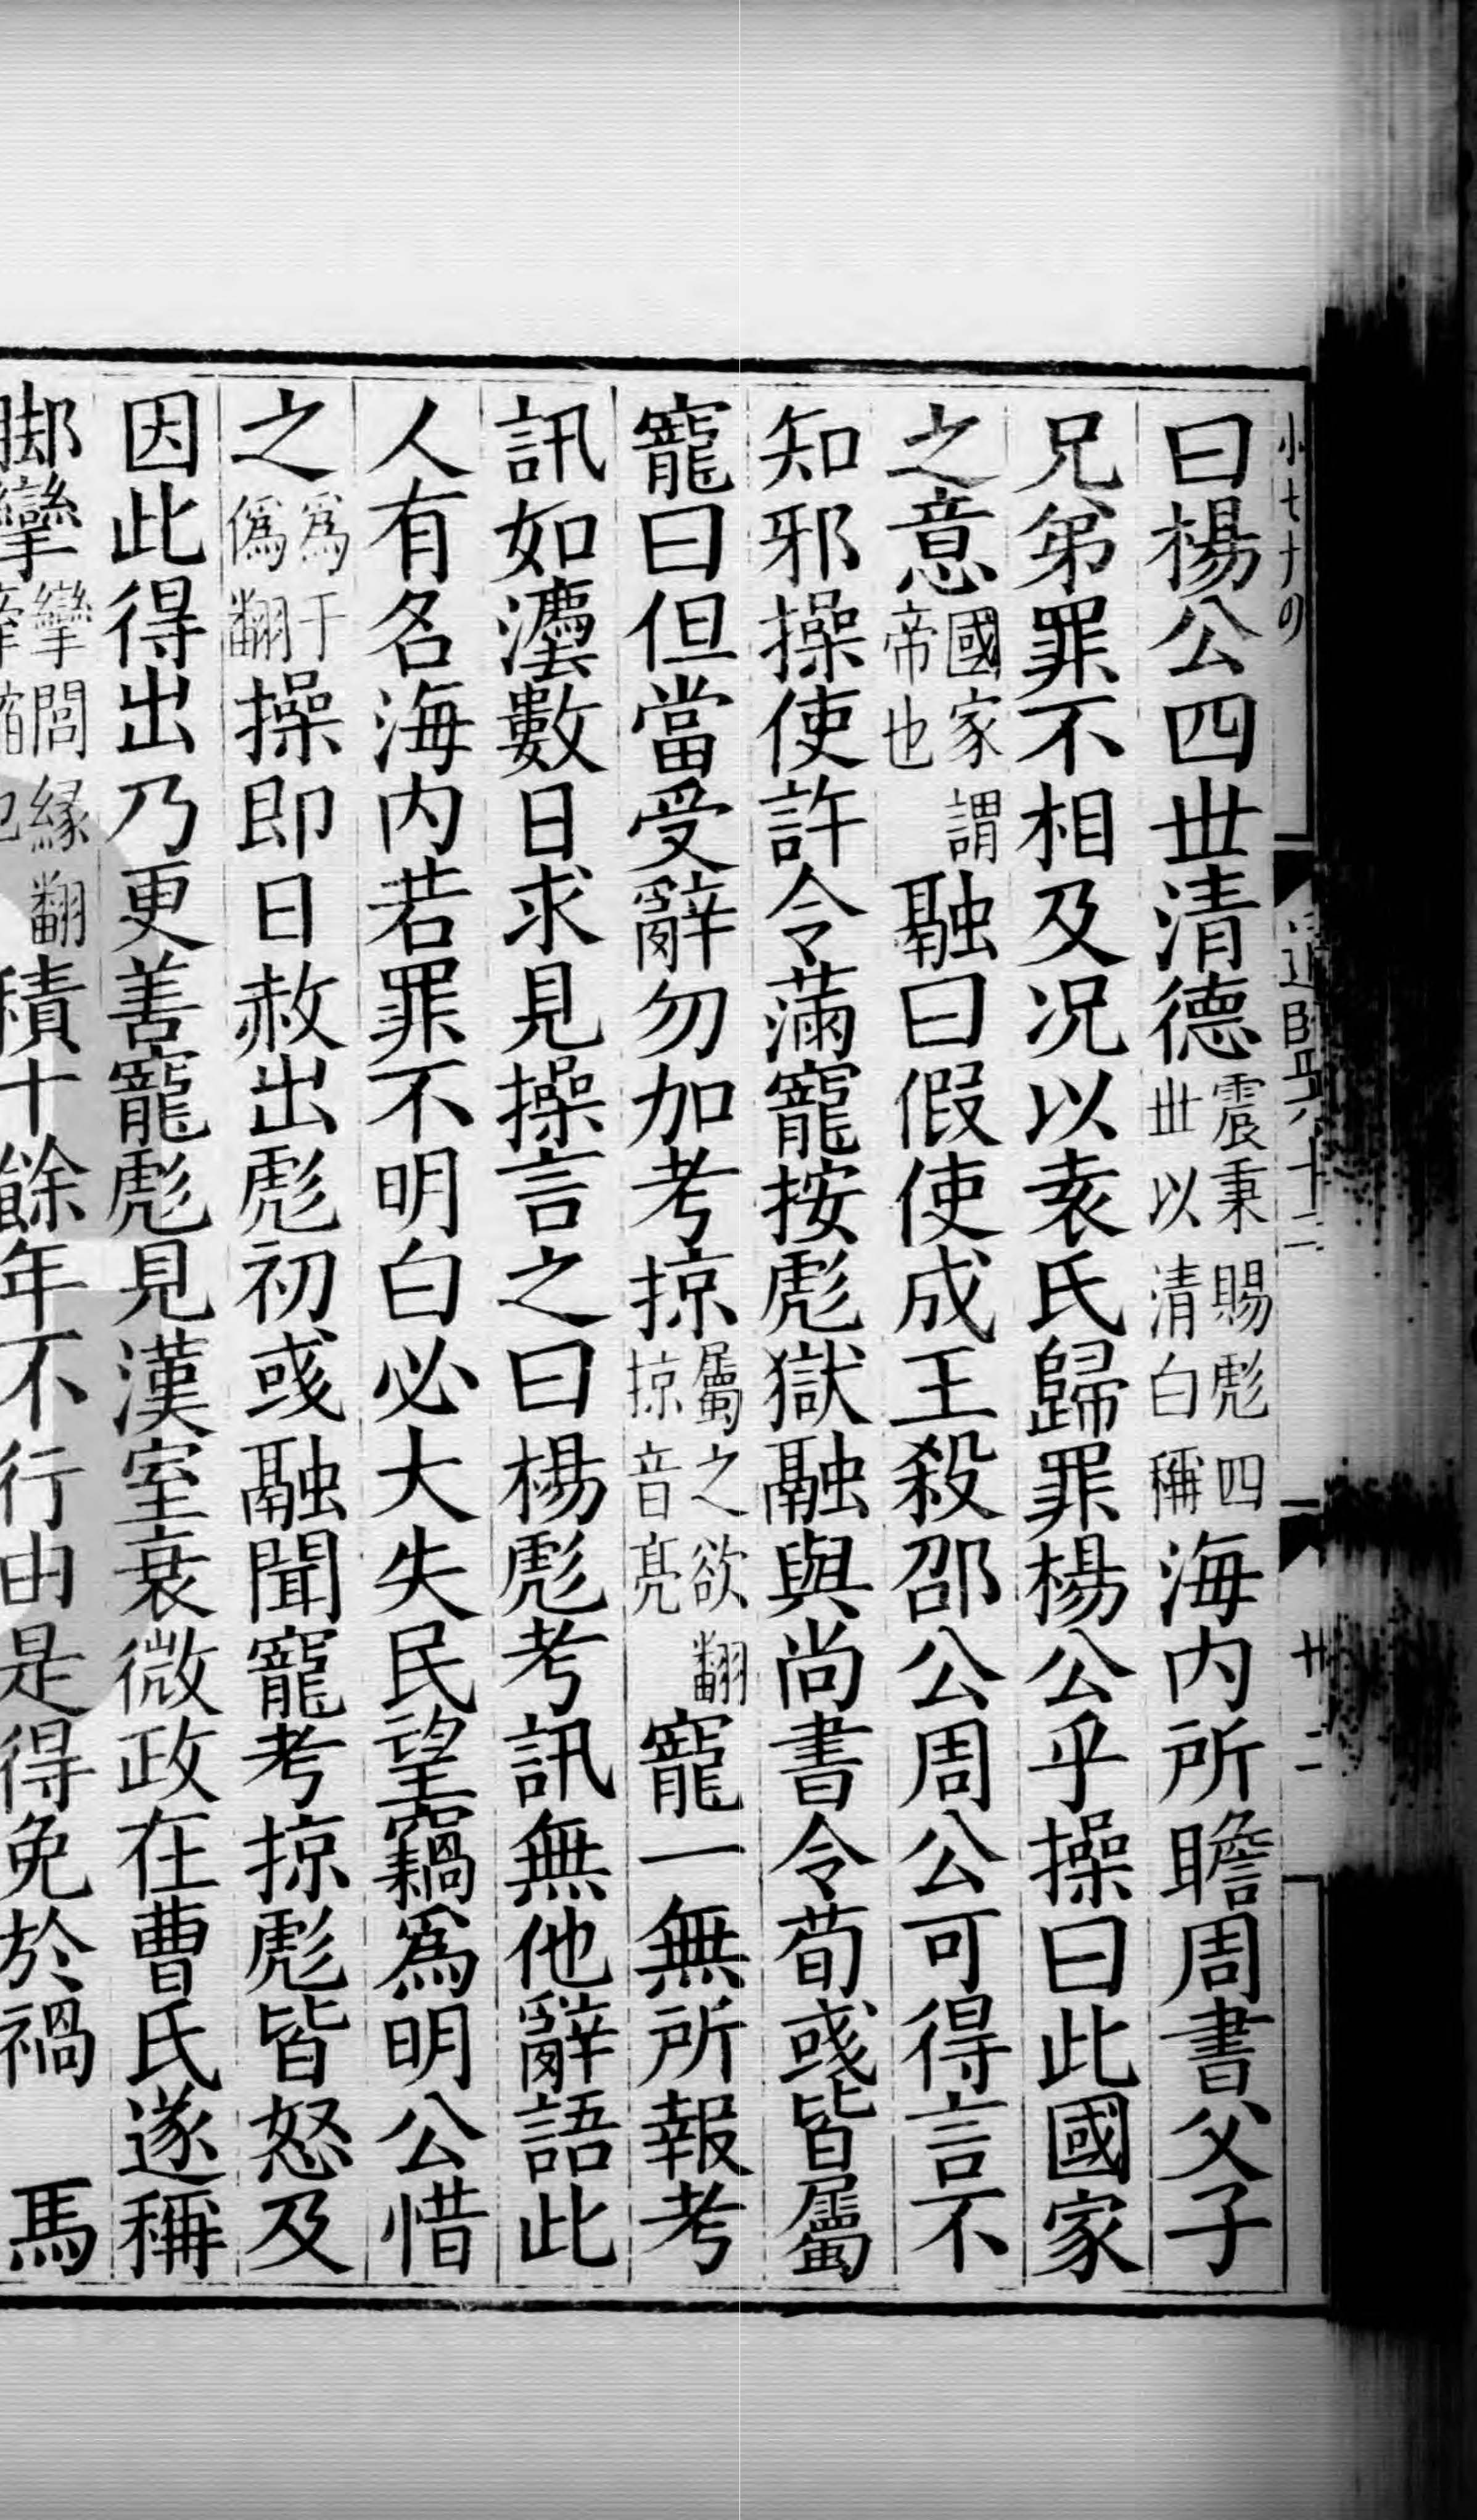 曰楊公四丗清德震秉賜彪四丗以清白稱海内所瞻周書父子
兄弟罪不相及况以袁氏歸罪楊公乎操曰此國家
之意國家謂帝也融曰假使成王殺邵公周公可得言不
知邪操使許令滿寵按彪獄融與尚書令荀彧皆屬
寵曰但當受辭勿加考掠屬之欲翻掠音亮寵一無所報考
訊如灋數日求見操言之曰楊彪考訊無他辭語此
人有名海内若罪不明白必大失民望竊爲明公惜
之爲于僞翻操即日赦出彪初彧融聞寵考掠彪皆怒及
因此得出乃更善寵彪見漢室衰微政在曹氏遂稱
脚攣攣閭縁翻積十餘年不行由是得免於禍　馬